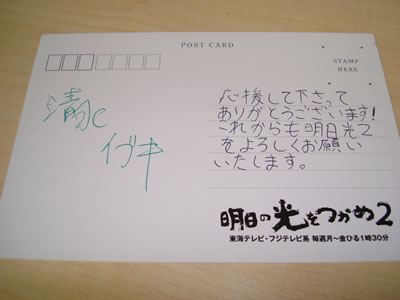 POST CARD
STAMP
HERE
応援して下さって
ありがとうございます!
これからも明日光2
をよろしくお願い
いたします。
イブキ
明日の光をつかめ2
東海テレビ・フジテレビ系 毎週月〜金ひる1時30分